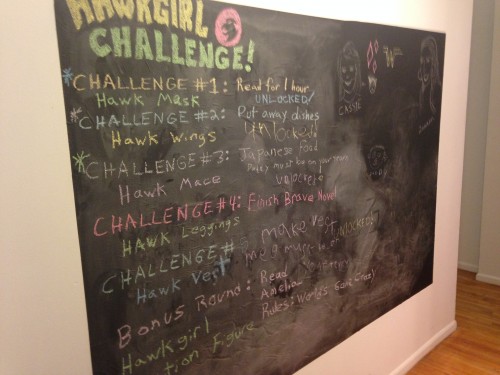 HAWKGIRL
CHALLENGE!
CHALLENGE #1: Read for 1 hour
Hawk Mask UNLOCKED!
CHALLENGE #2: Put away dishes
Hawk Wings UNLOCKED!
CHALLENGE #3: Japanese Food
Hawk Mace must be on your
UNLOCKED!
CHALLENGE #4: Finish Brave Novel
HAWK Leggings
CHALLENGE # make vest
Hawk Vest UNLOCKED!
Bonus Round: Read
Amelia
Hawkgirl Rules: World's Gone Crazy
tion Figure
CASSIE
W